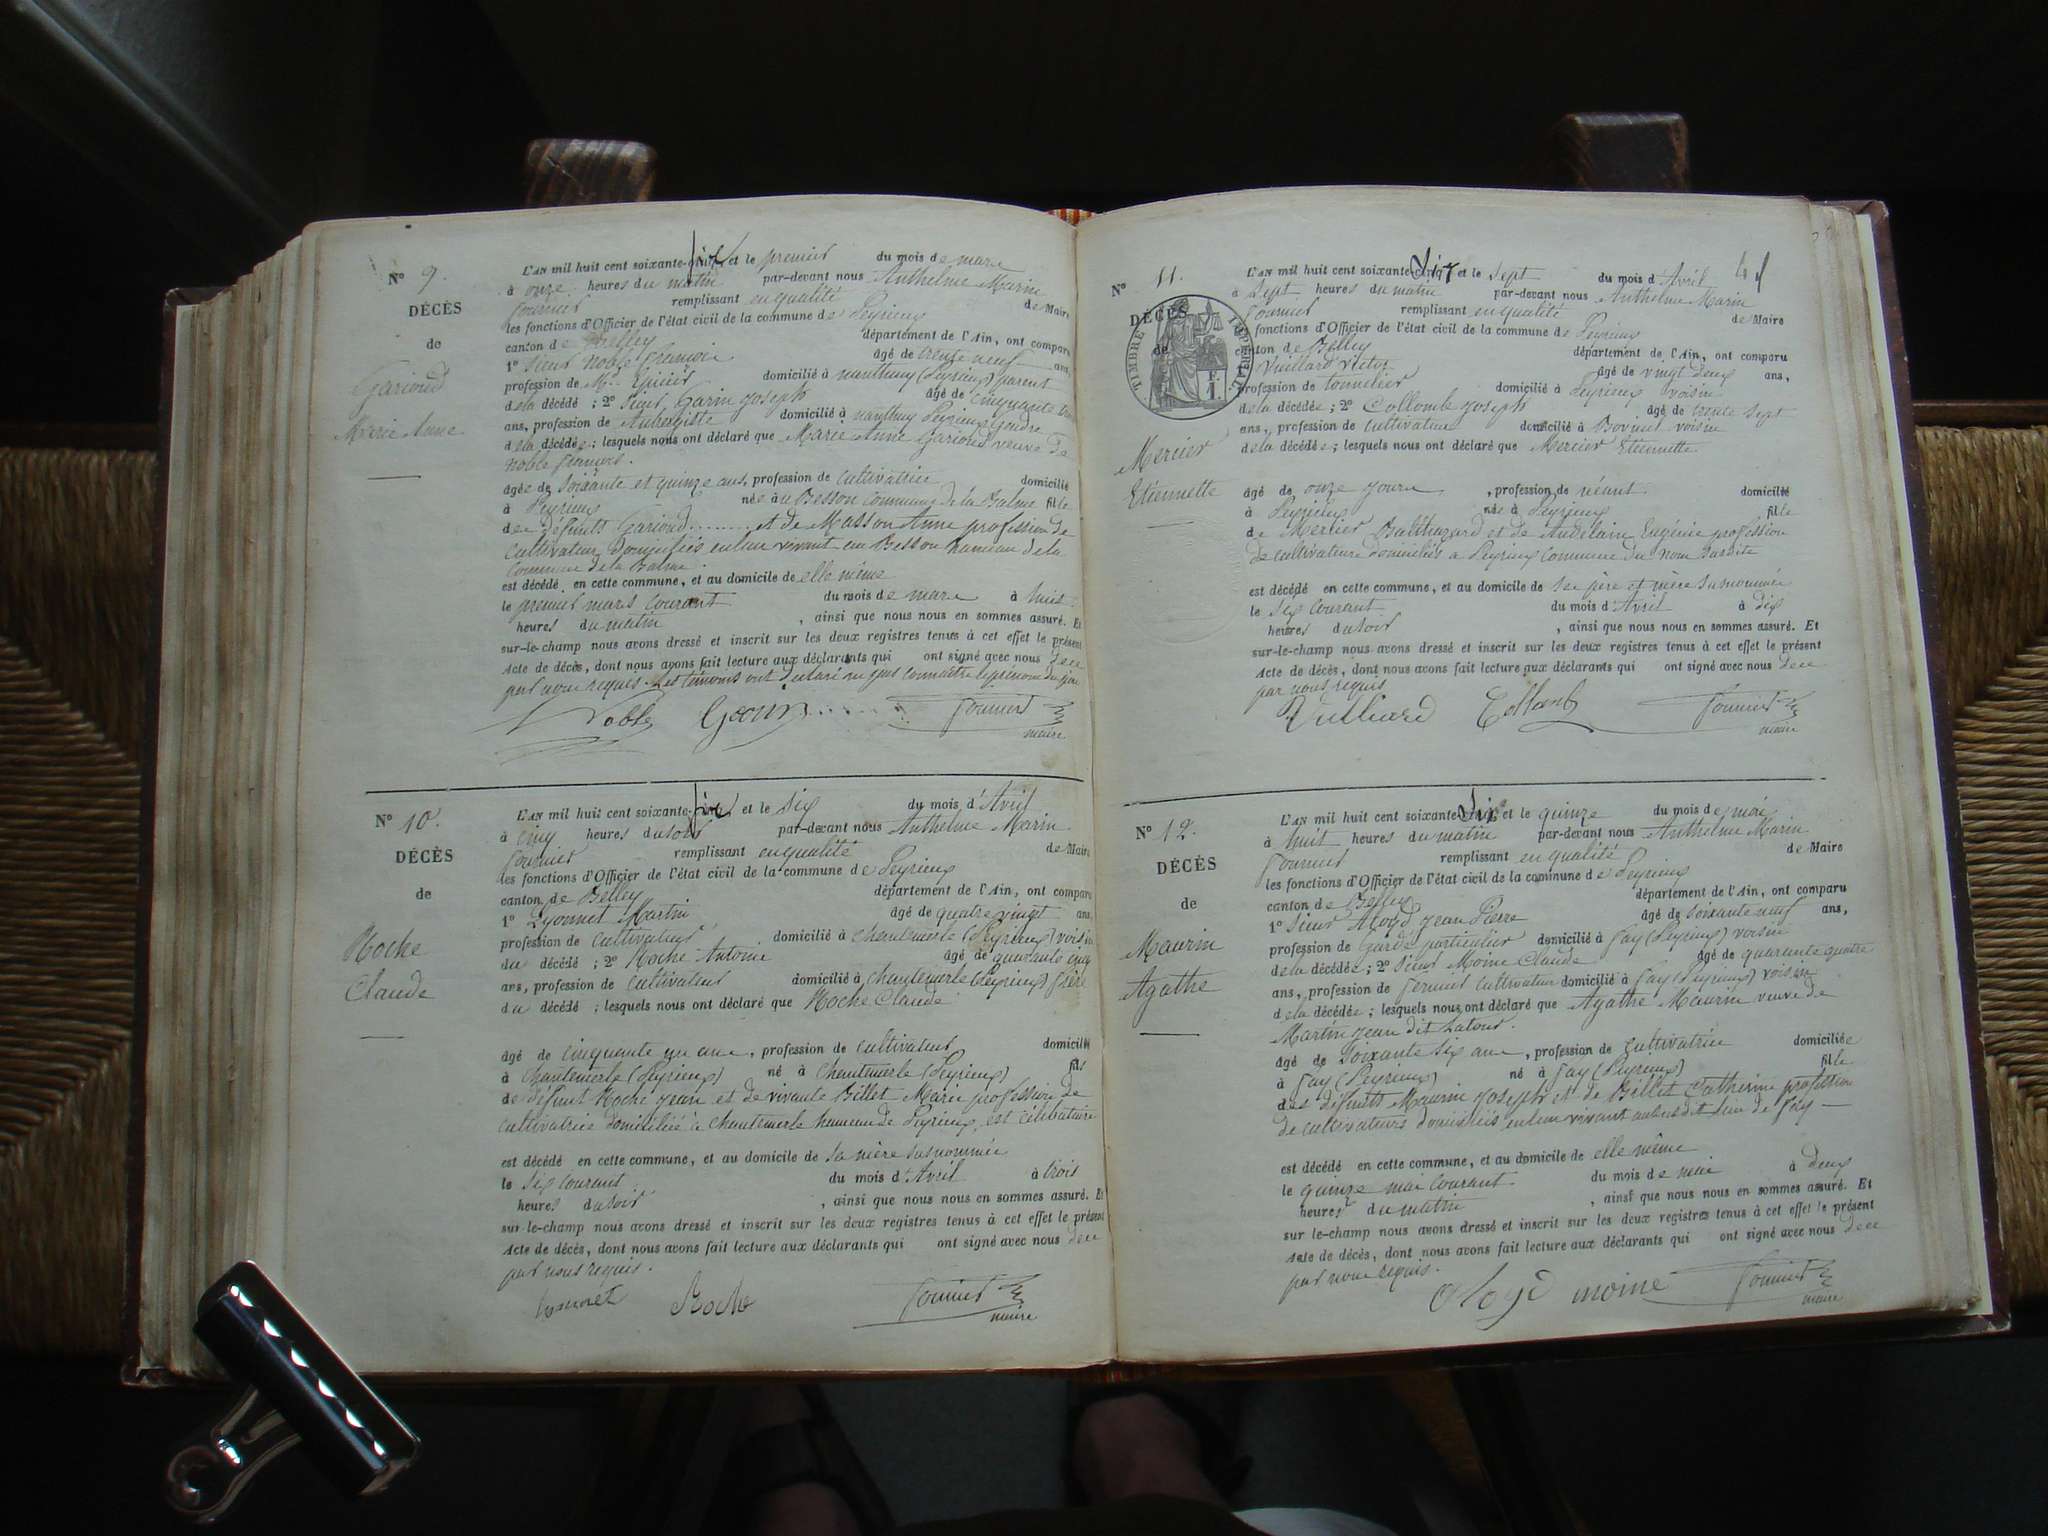 N° 9.
DÉCÈS
de
Garioud
Marie Anne
L'AN mil huit cent soixante-six et le premier du mois de mars
à onze heures du matin par-devant nous Anthelme Marin
Fournier remplissant en qualité de Maire
les fonctions d'Officier de l'état civil de la commune de Peyrieux
canton de Belley département de l'Ain, ont comparu
1° Sieur Noble François âgé de trente neuf ans,
profession de Md. Epicier domicilié à Nanthuy (Peyrieux) parent
de la décédé ; 2° Sieur Garin Joseph âgé de cinquante
ans, profession de Aubergiste domicilié à Nanthuy Peyrieux Gendre
de la décédée ; lesquels nous ont déclaré que Marie Anne Garioud veuve de
Noble François.
âgée de soixante et quinze ans, profession de cultivatrice domicilié
à Peyrieux née à Besson commune de la Balme fille
des défunts Garioud ......... et de Masson Anne profession de
cultivateurs domiciliés en leur vivant au Besson hameau de la
commune de la Balme.
est décédé en cette commune, et au domicile de elle même
le premier mars courant du mois de mars à huit
heures du matin , ainsi que nous nous en sommes assuré. Et
sur-le-champ nous avons dressé et inscrit sur les deux registres tenus à cet effet le présent
Acte de décès, dont nous avons fait lecture aux déclarants qui ont signé avec nous de ce
par nous requis. Les témoins ont déclaré ne pas connaître le prénom du père
Noble Fournier
maire
N° 10.
DÉCÈS
de
Roche
Claude
L'AN mil huit cent soixante-six et le six du mois d'Avril
à cinq heures du soir par-devant nous Anthelme Marin
Fournier remplissant en qualité de Maire
les fonctions d'Officier de l'état civil de la commune de Peyrieux
canton de Belley département de l'Ain, ont comparu
1° Lyonnet Martin âgé de quatre vingt ans,
profession de cultivateur domicilié à Chantemerle (Peyrieux) voisin
du décédé ; 2° Roche Antoine âgé de quarante cinq
ans, profession de cultivateur domicilié à Chantemerle (Peyrieux) frère
du décédé ; lesquels nous ont déclaré que Roche Claude
âgé de cinquante un ans, profession de cultivateur domicilié
à Chantemerle (Peyrieux) né à Chantemerle (Peyrieux) fils
de défunt Roche Jean et de vivante Billet Marie profession de
cultivatrice domiciliée à Chantemerle hameau de Peyrieux, est célibataire
est décédé en cette commune, et au domicile de sa mère susnommée
le six courant du mois d'Avril à trois
heures du soir , ainsi que nous nous en sommes assuré. Et
sur-le-champ nous avons dressé et inscrit sur les deux registres tenus à cet effet le présent
Acte de décès, dont nous avons fait lecture aux déclarants qui ont signé avec nous de ce
par nous requis.
Roche Fournier
maire
N° 11.
DÉCÈS
de
TIMBRE IMPERIAL
F.
1.
Mercier
Etiennette
L'AN mil huit cent soixante-six et le sept du mois d'Avril
à sept heures du matin par-devant nous Anthelme Marin
Fournier remplissant en qualité de Maire
les fonctions d'Officier de l'état civil de la commune de Peyrieux
canton de Belley département de l'Ain, ont comparu
Vuillard Victor âgé de vingt deux ans,
profession de tonnelier domicilié à Peyrieux voisin
de la décédée ; 2° Collomb Joseph âgé de trente sept
ans, profession de cultivateur domicilié à Bovinel voisin
de la décédée ; lesquels nous ont déclaré que Mercier Etiennette
âgé de onze jours , profession de néant domicilié
à Peyrieux née à Peyrieux fille
de Mercier Balthazard et de Andelain Eugénie profession
de cultivateurs domiciliés à Peyrieux commune du nom susdite
est décédé en cette commune, et au domicile de ses père et mère susnommés
le six courant du mois d'Avril à dix
heures du soir , ainsi que nous nous en sommes assuré. Et
sur-le-champ nous avons dressé et inscrit sur les deux registres tenus à cet effet le présent
Acte de décès, dont nous avons fait lecture aux déclarants qui ont signé avec nous de ce
par nous requis
Vuillard Collomb Fournier
maire
N° 12.
DÉCÈS
de
Maurin
Agathe
L'AN mil huit cent soixante-six et le quinze du mois de mai
à huit heures du matin par-devant nous Anthelme Marin
Fournier remplissant en qualité de Maire
les fonctions d'Officier de l'état civil de la commune de Peyrieux
canton de Belley département de l'Ain, ont comparu
1° Sieur Jean Pierre âgé de soixante neuf ans,
profession de Garde particulier domicilié à Fay (Peyrieux) voisin
de la décédée ; 2° Sieur Moine Claude âgé de quarante quatre
ans, profession de fermier cultivateur domicilié à Fay (Peyrieux) voisin
de la décédée ; lesquels nous ont déclaré que Agathe Maurin veuve de
Martin Jean dit Latour.
âgé de soixante six ans , profession de cultivatrice domiciliée
à Fay (Peyrieux) né à Fay (Peyrieux) fille
des défunts Maurin Joseph et de Billet Catherine profession
de cultivateurs domiciliés en leur vivant au susdit lieu de Fay
est décédé en cette commune, et au domicile de elle même
le quinze mai courant du mois de mai à deux
heures du matin , ainsi que nous nous en sommes assuré. Et
sur-le-champ nous avons dressé et inscrit sur les deux registres tenus à cet effet le présent
Acte de décès, dont nous avons fait lecture aux déclarants qui ont signé avec nous de ce
par nous requis.
moine Fournier
maire